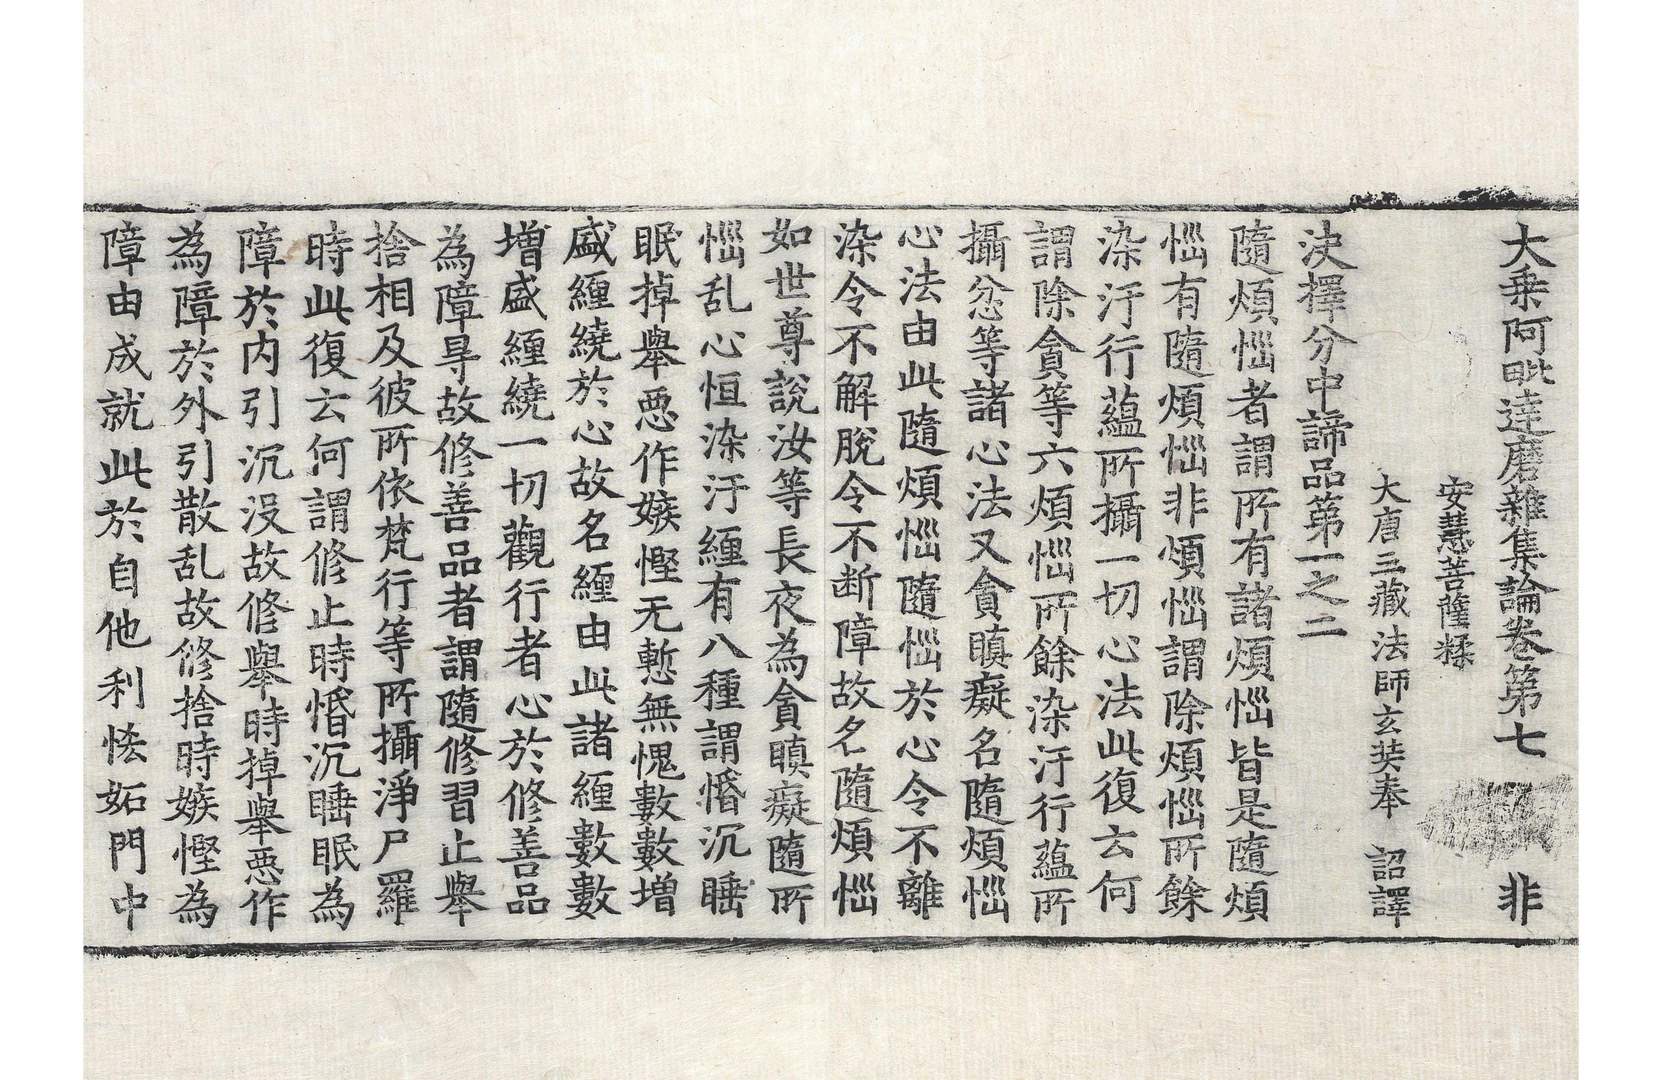 大乗阿毗達磨雜集論卷第七 非
安慧菩薩糅
大唐三藏法師玄奘奉 詔譯
決擇分中諦品第一之二
隨煩惱者謂所有諸煩惱皆是隨煩
惱有隨煩惱非煩惱謂除煩惱所餘
染汙行蘊所攝一切心法此復云何
謂除貪等六煩惱所餘染汙行蘊所
攝忿等諸心法又貪瞋癡名隨煩惱
心法由此隨煩惱隨惱於心令不離
染令不解脫令不断障故名隨煩惱
如世尊說汝等長夜為貪瞋癡隨所
惱乱心恒染汙纏有八種謂惛沉睡
眠掉舉惡作嫉慳无慙無愧數數增
盛纏繞於心故名纏由此諸纏數數
增盛纏繞一切觀行者心於修善品
為障㝵故修善品者謂隨修習止舉
捨相及彼所依梵行等所攝淨尸羅
時此復云何謂修止時惛沉睡眠為
障於内引沉没故修舉時掉舉惡作
為障於外引散乱故修捨時嫉慳為
障由成就此於自他利恡妬門中